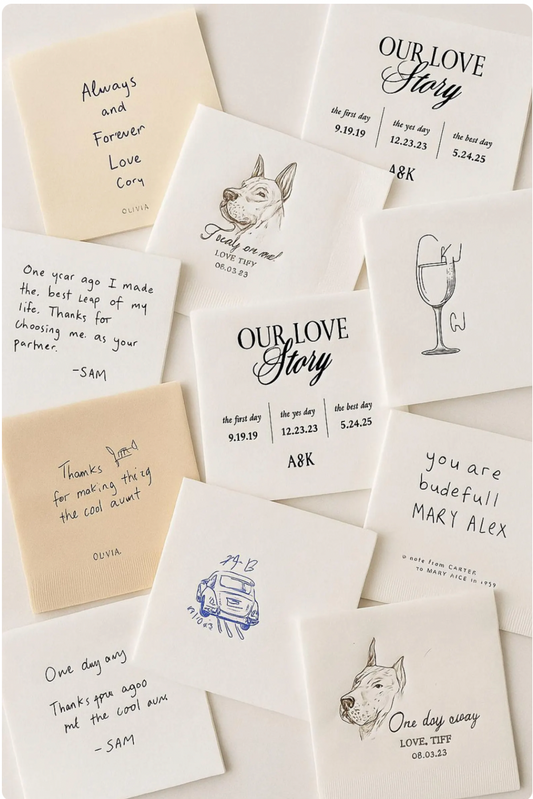 Always
and
Forever
Love
Cory
OLIVIA
OUR LOVE
Story
the first day
9.19.19
the yes day
12.23.23
the best day
5.24.25
A&K
Focaly on me!
LOVE TIFY
08.03.23
One year ago I made
the. best leap of my
life. Thanks for
choosing me. as your
partner.
-SAM
OUR LOVE
Story
the first day
9.19.19
the yes day
12.23.23
the best day
5.24.25
A&K
Thanks
for making
the cool aunt
OLIVIA
you are
budefull
MARY ALEX
a note from CARTER
TO MARY AICE in 1959
One day any
Thanks agoo
mt the cool
-SAM
One day away
LOVE, TIFF
08.03.23